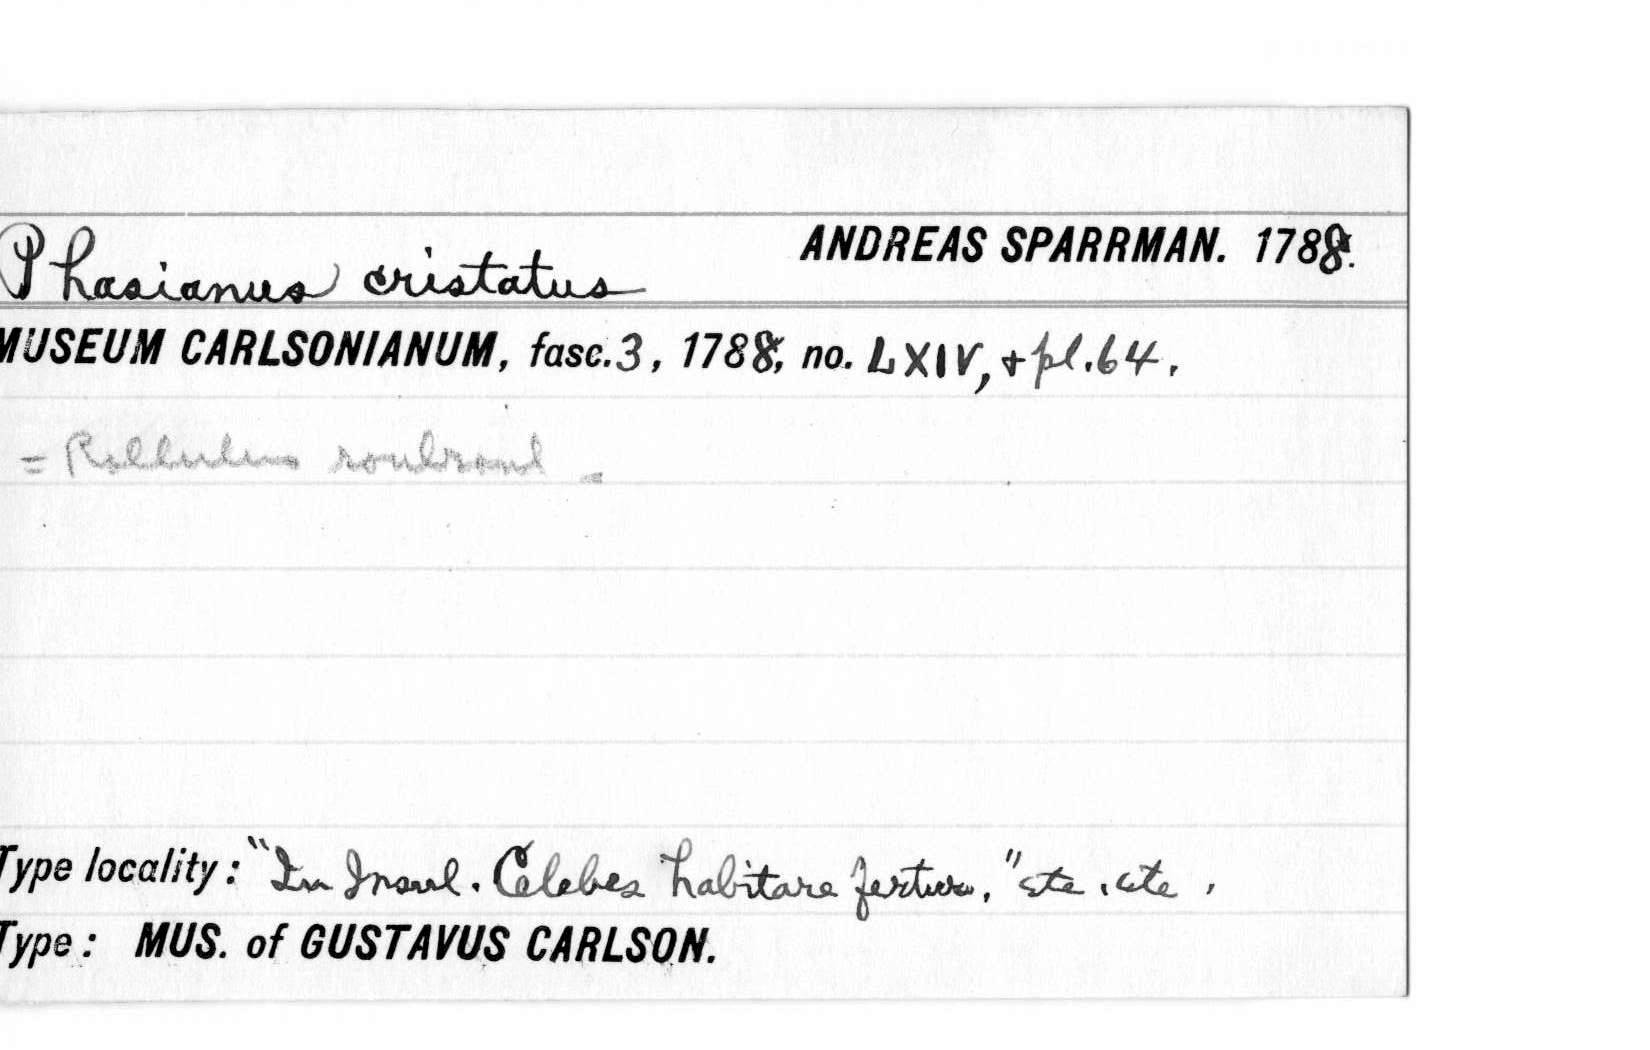 Phasianus cristatus ANDREAS SPARRMAN. 1788.
MUSEUM CARLSONIANUM, fasc. 3, 1788, no. LXIV, + pl. 64.
= Rollulus roulroul
Type locality: "In Insul. Celebes habitare fertur," etc. etc.
Type: MUS. of GUSTAVUS CARLSON.